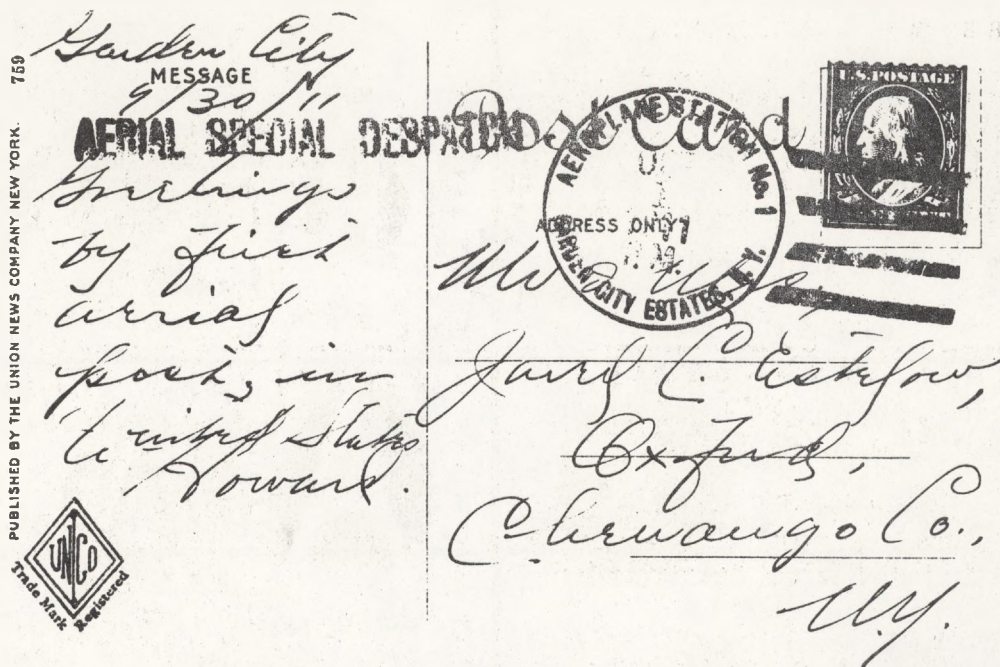 759
PUBLISHED BY THE UNION NEWS COMPANY NEW YORK.
Garden City
MESSAGE
9/30/11
AERIAL SPECIAL DESPATCH
Greetings
by first
aerial
post, in
United States
Howard.
UNCO
Trade Mark Registered
Post Card
AEROPLANE STATION No. 1
GARDEN CITY ESTATES, N.Y.
U.S. POSTAGE
ADDRESS ONLY
Mr & Mrs
Jared C. Estelow,
Oxford,
Chenango Co.,
N.Y.